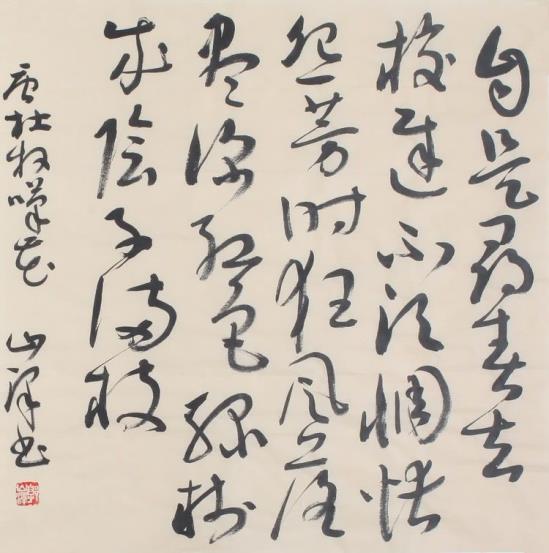 自是尋春去
校遲不須惆悵
怨芳時狂風落
盡深紅色綠樹
成陰子滿枝
唐杜牧嘆花 山書